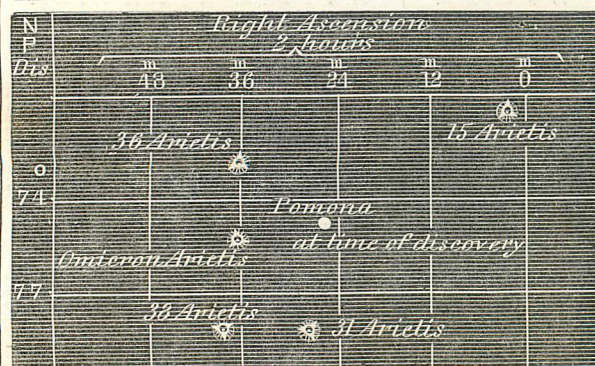 N
P
Dis
Right Ascension
2 hours
m m m m m
48 36 24 12 0
15 Arietis
36 Arietis
o
74
Pomona
at time of discovery
Omicron Arietis
77
38 Arietis
31 Arietis